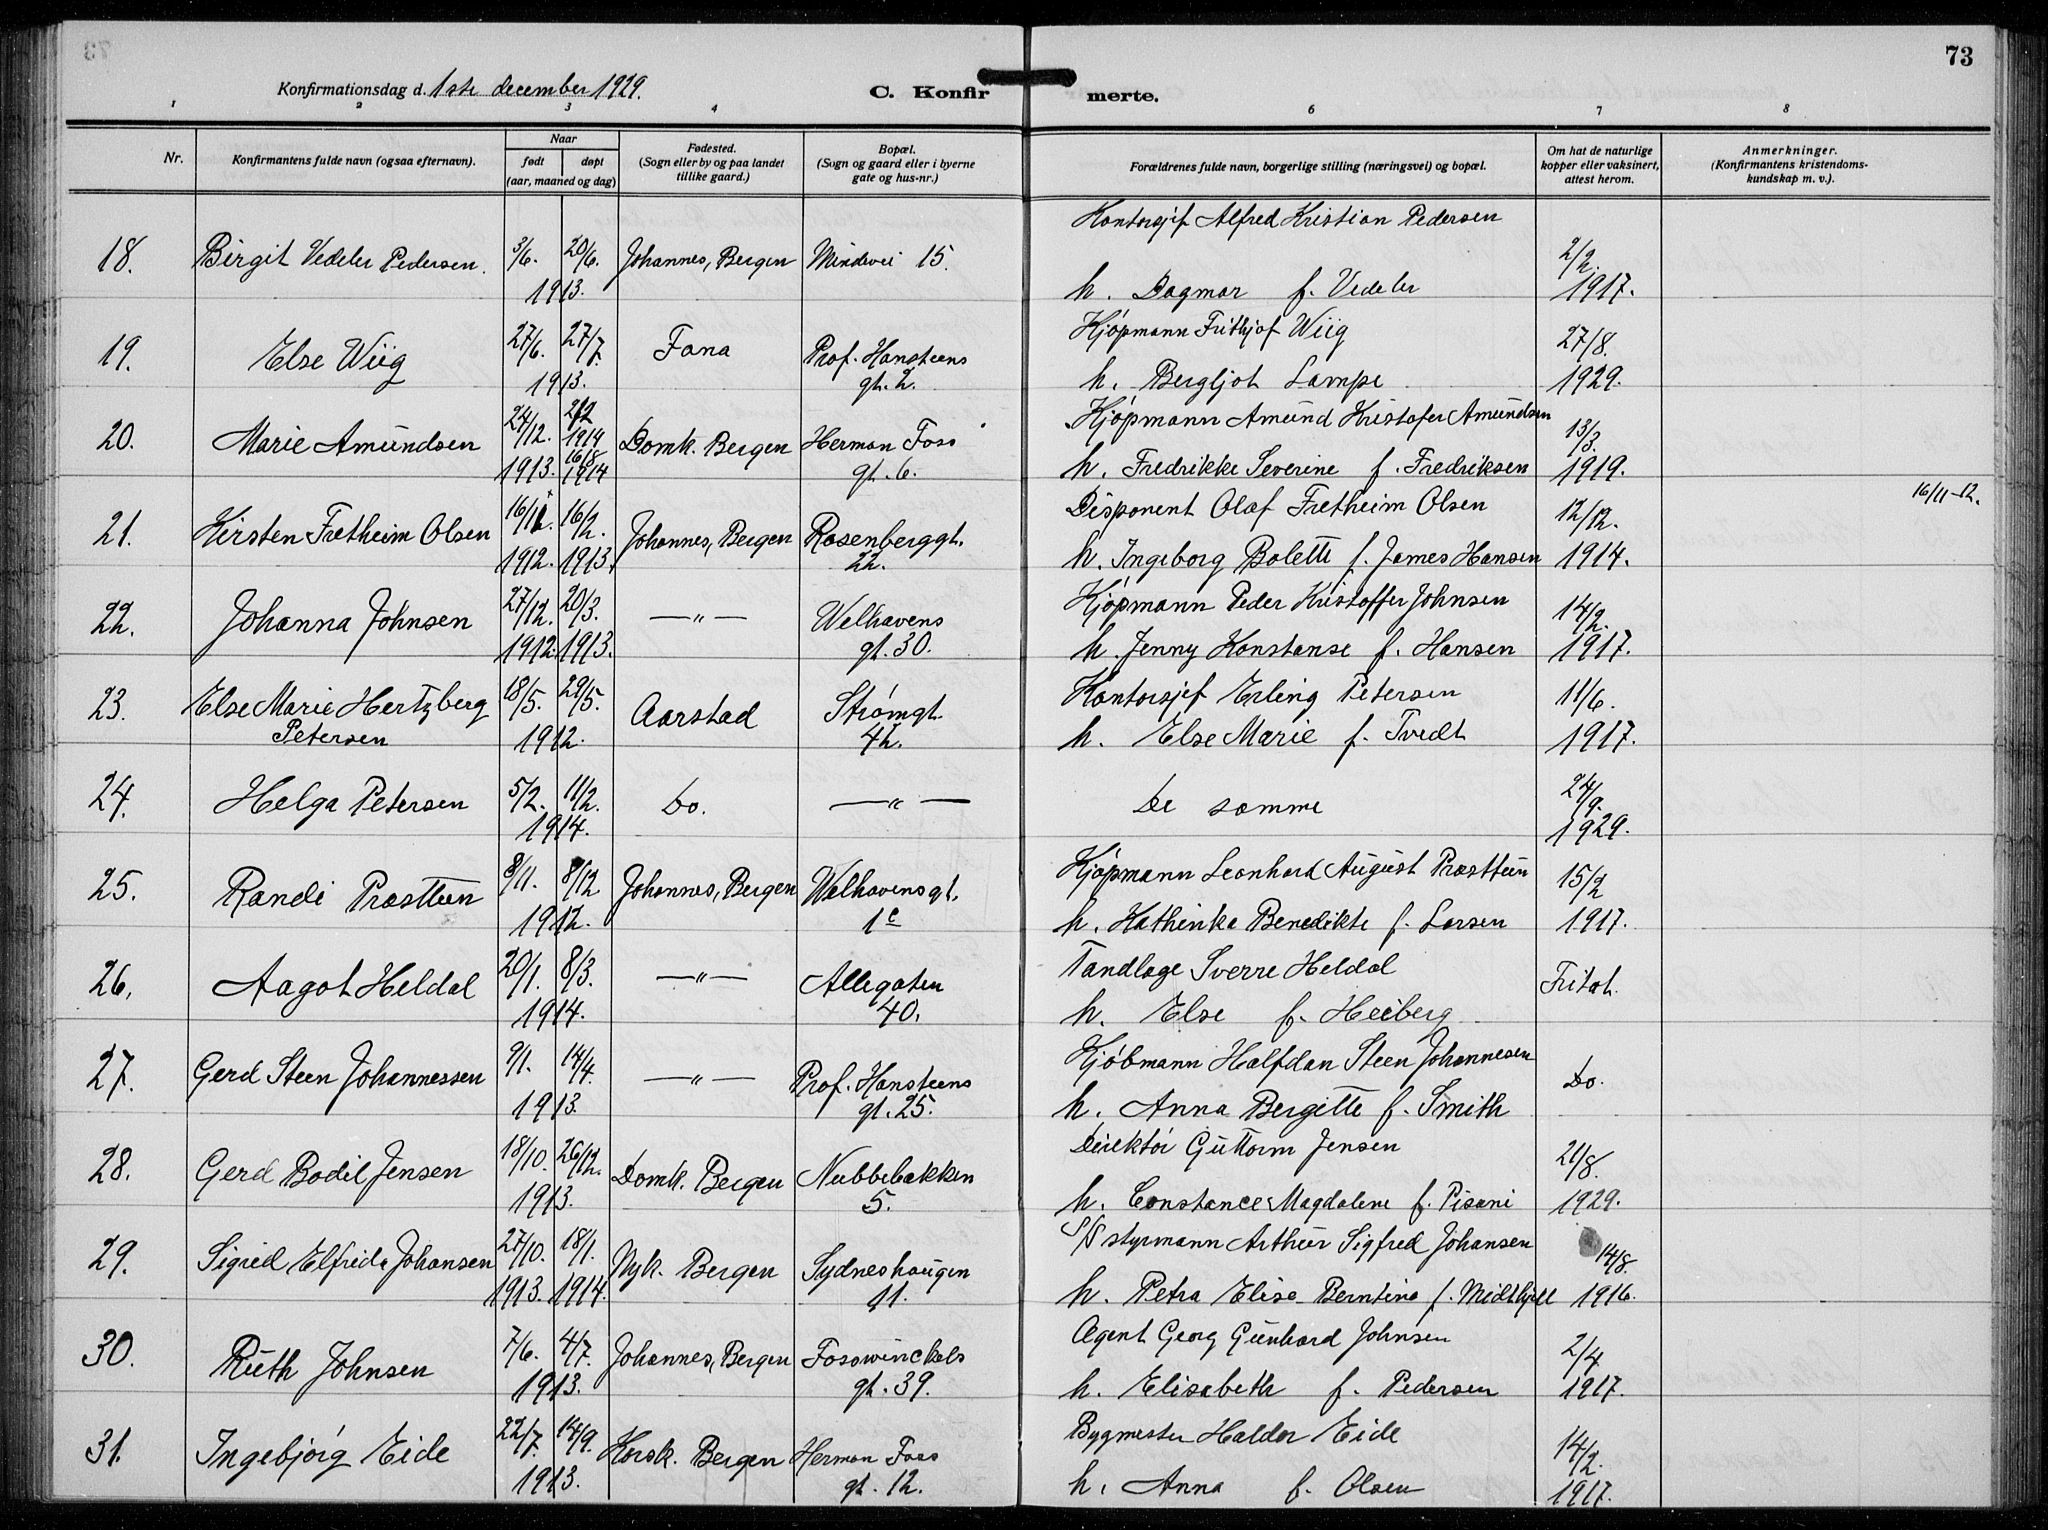 73
Konfirmationsdag d. 1ste december 1929.
C. Konfirmerte.
1 2 3 4 6 7 8
Nr.
Konfirmantens fulde navn (ogsaa efternavn).
Naar
født
døpt
(aar, maaned og dag)
Fødested.
(Sogn eller by og paa landet
tillike gaard.)
Bopæl.
(Sogn og gaard eller i byerne
gate og hus-nr.)
Forældrenes fulde navn, borgerlige stilling (næringsvei) og bopæl.
Om hat de naturlige
kopper eller vaksinert,
attest herom.
Anmerkninger.
(Konfirmantens kristendoms-
kundskap m. v.).
Kontorsjef Alfred Kristian Pedersen
18. Birgit Vedeler Pedersen. 3/6. 20/6. Johannes, Bergen Mindevei 15. 2/2.
1913. h. Dagmar f. Vedeler 1917.
Kjøpmann Frithjof Wiig
19. Else Wiig 27/6. 27/7. Fana Prof. Hansteens 27/8.
1913. gt. 2. h. Bergljot Lampe 1929.
Kjøpmann Amund Kristofer Amundsen
20. Marie Amundsen 24/12. 1914 Domk. Bergen Herman Foss 13/3.
1913. 16/8 1914 gt. 6. h. Fredrikke Severine f. Fredriksen 1919.
Disponent Olaf Fretheim Olsen 16/11-12.
21. Kirsten Fretheim Olsen 16/11. 16/2. Johannes, Bergen Rosenberggt. 12/12.
1912. 1913. 22. h. Ingeborg Bolette f. James Hansen 1914.
Kjøpmann Peder Kristoffer Johnsen
22. Johanna Johnsen 27/12. 20/3. —"— Welhavens 14/2.
1912. 1913. gt. 30. h. Jenny Konstanse f. Hansen 1917.
23. Else Marie Hertzberg 18/5. 29/5. Aarstad Strømgt. Kontorsjef Erling Petersen 11/6.
Petersen 1912. 42. h. Else Marie f. Tvedt 1917.
24. Helga Petersen 5/2. 11/2. Do. —"— De samme 24/9.
1914. 1929.
Kjøpmann Leonhard August Præsttun
25. Randi Præsttun 8/11. 8/12 Johannes, Bergen Welhavensgt. 15/2
1912. 1c h. Kathinka Benedikte f. Larsen 1917.
Tandlæge Sverre Heldal
26. Aagot Heldal 20/1. 8/3. —"— Allegaten Fritat.
1914. 40. h. Else f. Heiberg
Kjøbmann Halfdan Steen Johannesen
27. Gerd Steen Johannessen 9/1. 14/4. —"— Prof. Hansteens Do.
1913. gt. 25. h. Anna Bergitte f. Smith
Direktør Guttorm Jensen
28. Gerd Bodil Jensen 18/10. 26/12. Domk. Bergen Nubbebakken 21/8.
1913. 5. h. Constance Magdalene f. Pisani 1929.
S/S styrmann Arthur Sigfred Johansen
29. Sigrid Elfrida Johansen 27/10. 18/1. Nyk. Bergen Sydneshaugen 14/8.
1913. 1914. 11. h. Petra Elise Berntine f. 1916.
Agent Georg Gunhard Johnsen
30. Ruth Johnsen 7/6. 4/7. Johannes, Bergen Fosswinckels 2/4
1913. gt. 39. h. Elisabeth f. Pedersen 1917.
Bygmester Haldor Eide
31. Ingebjørg Eide 22/7. 14/9. Korsk. Bergen Herman Foss 14/2.
1913. gt. 12. h. Anna f. Olsen 1917.